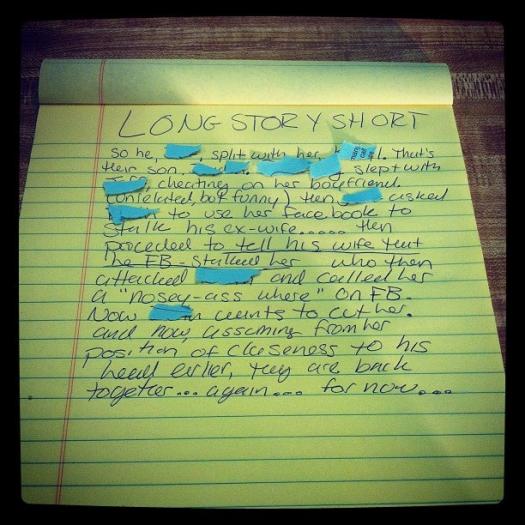 LONG STORY SHORT
so he, , split with her, . That's
their son. slept with
, cheating on her boyfriend.
(unrelated, but funny) then asked
to use her facebook to
stalk his ex-wife..... then
proceeded to tell his wife that
he FB-stalked her who then
attacked and called her
a "nosey-ass whore" on FB.
Now wants to cut her.
and now, assuming from her
position of closeness to his
head earlier, they are back
together... again... for now...